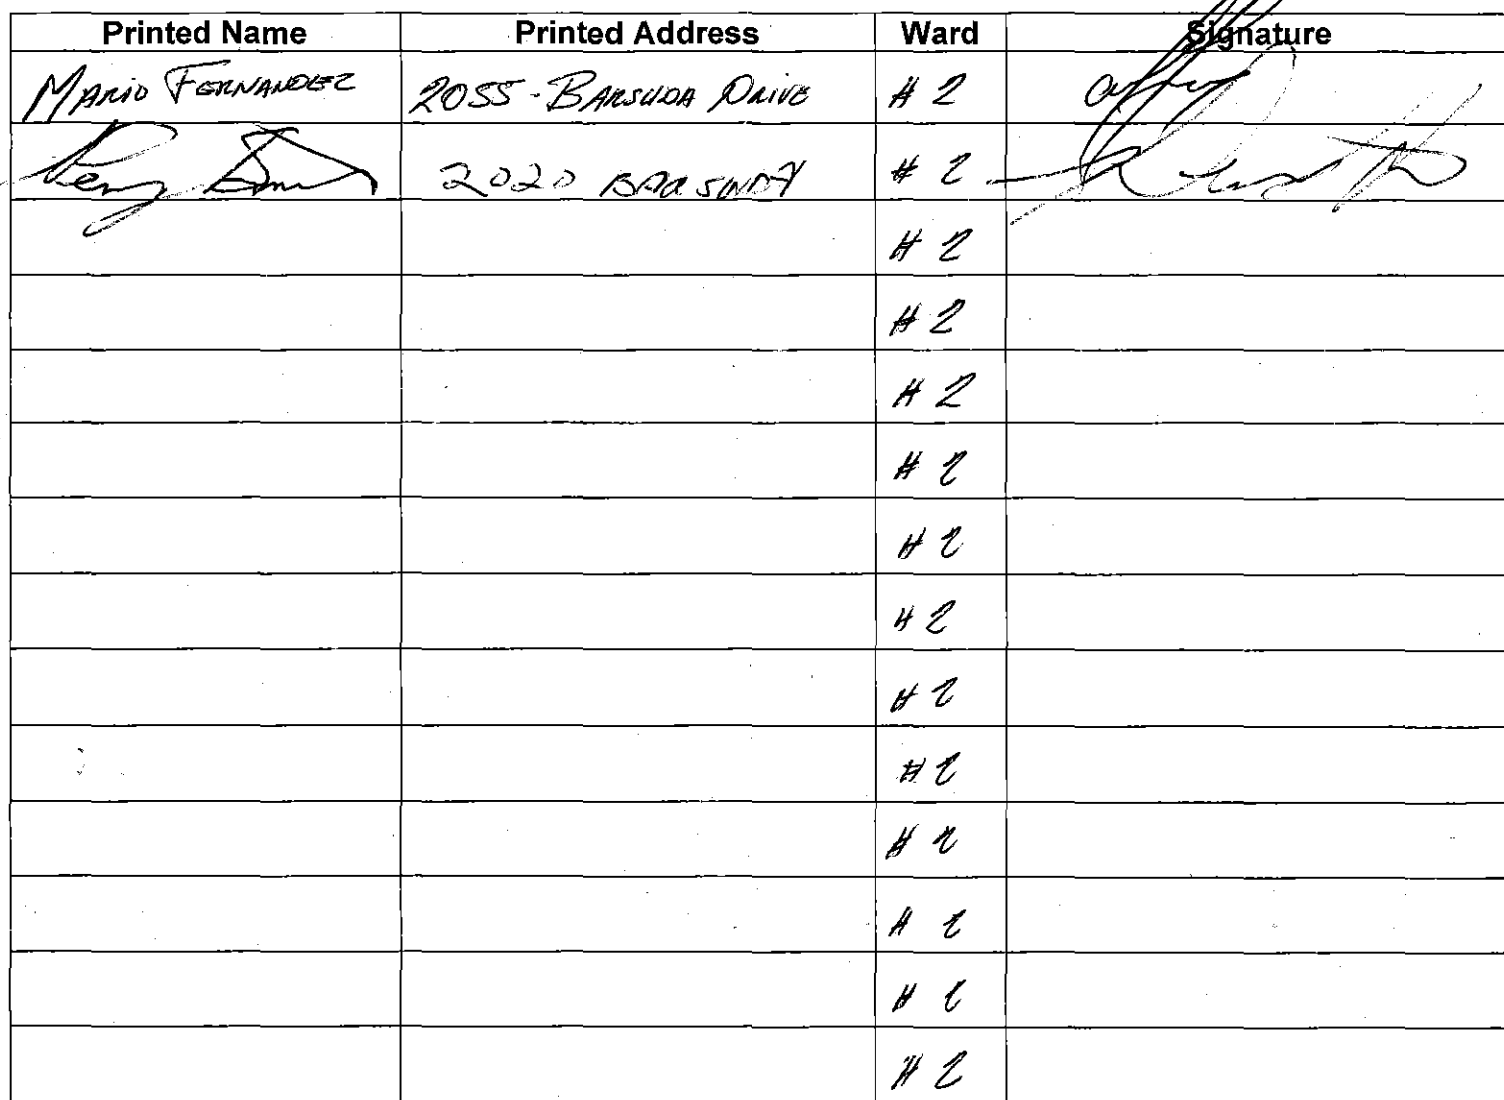 Printed Name Printed Address Ward Signature
MARIO FERNANDEZ 2055 - BARSUDA DRIVE # 2
2020 BARSUDA # 2
# 2
# 2
# 2
# 2
# 2
# 2
# 2
# 2
# 2
# 2
# 2
# 2